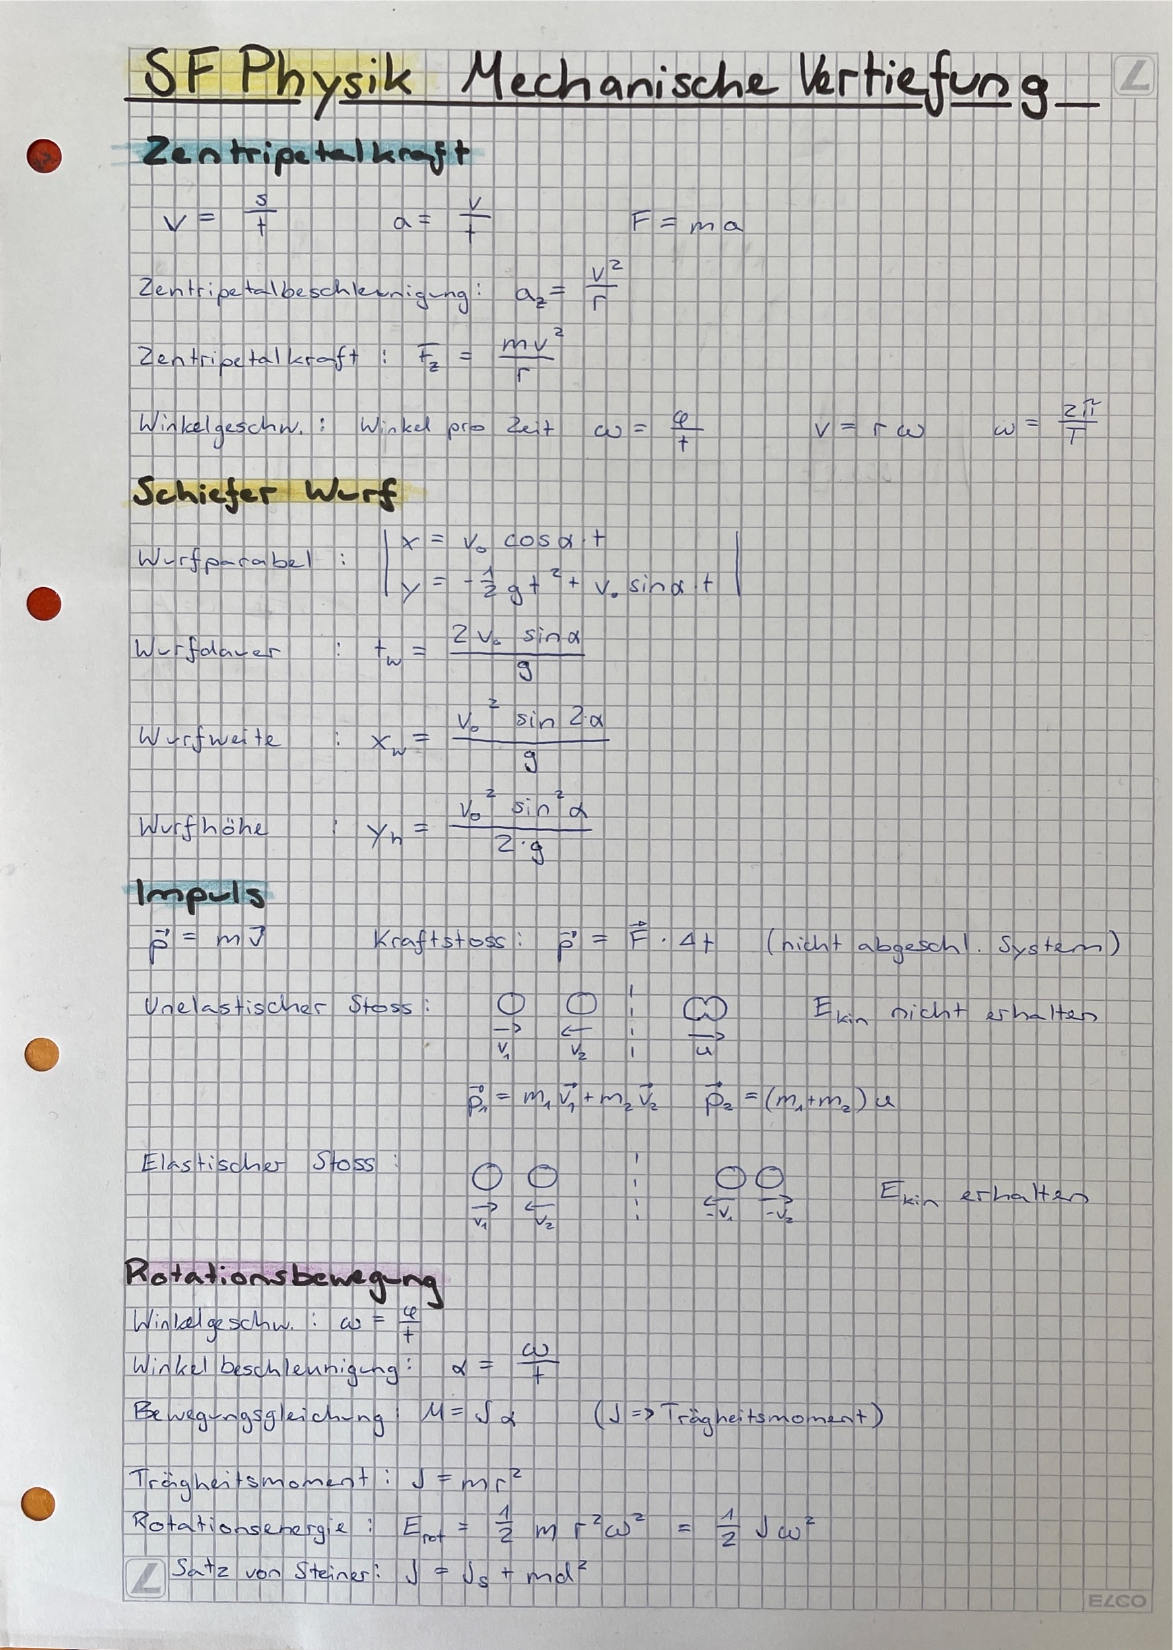 SF Physik Mechanische Vertiefung
Zentripetalkraft
v = s/t a = v/t F = m a
Zentripetalbeschleunigung: a_z = v²/r
Zentripetalkraft : F_z = mv²/r
Winkelgeschw. : Winkel pro Zeit ω = φ/t v = r ω ω = 2π/T
Schiefer Wurf
Wurfparabel : | x = v₀ cosα·t |
| y = -½ g t² + v₀ sinα·t |
Wurfdauer : t_w = 2 v₀ sinα / g
Wurfweite : x_w = v₀² sin 2·α / g
Wurfhöhe : y_h = v₀² sin²α / 2·g
Impuls
p⃗ = m v⃗ Kraftstoss : p⃗ = F⃗ · Δt (nicht abgeschl. System)
Unelastischer Stoss : E_kin nicht erhalten
v₁ v₂ u
p⃗₁ = m₁ v⃗₁ + m₂ v⃗₂ p⃗₂ = (m₁+m₂) u
Elastischer Stoss : E_kin erhalten
v₁ v₂ -v₁ -v₂
Rotationsbewegung
Winkelgeschw. : ω = φ/t
Winkelbeschleunigung : α = ω/t
Bewegungsgleichung : M = J α (J => Trägheitsmoment)
Trägheitsmoment : J = mr²
Rotationsenergie : E_rot = ½ m r²ω² = ½ J ω²
Satz von Steiner : J = J_s + md²
ELCO